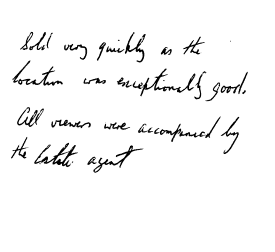 Sold very quickly as the
location was exceptionally good.
All viewers were accompanied by
the Estate agent